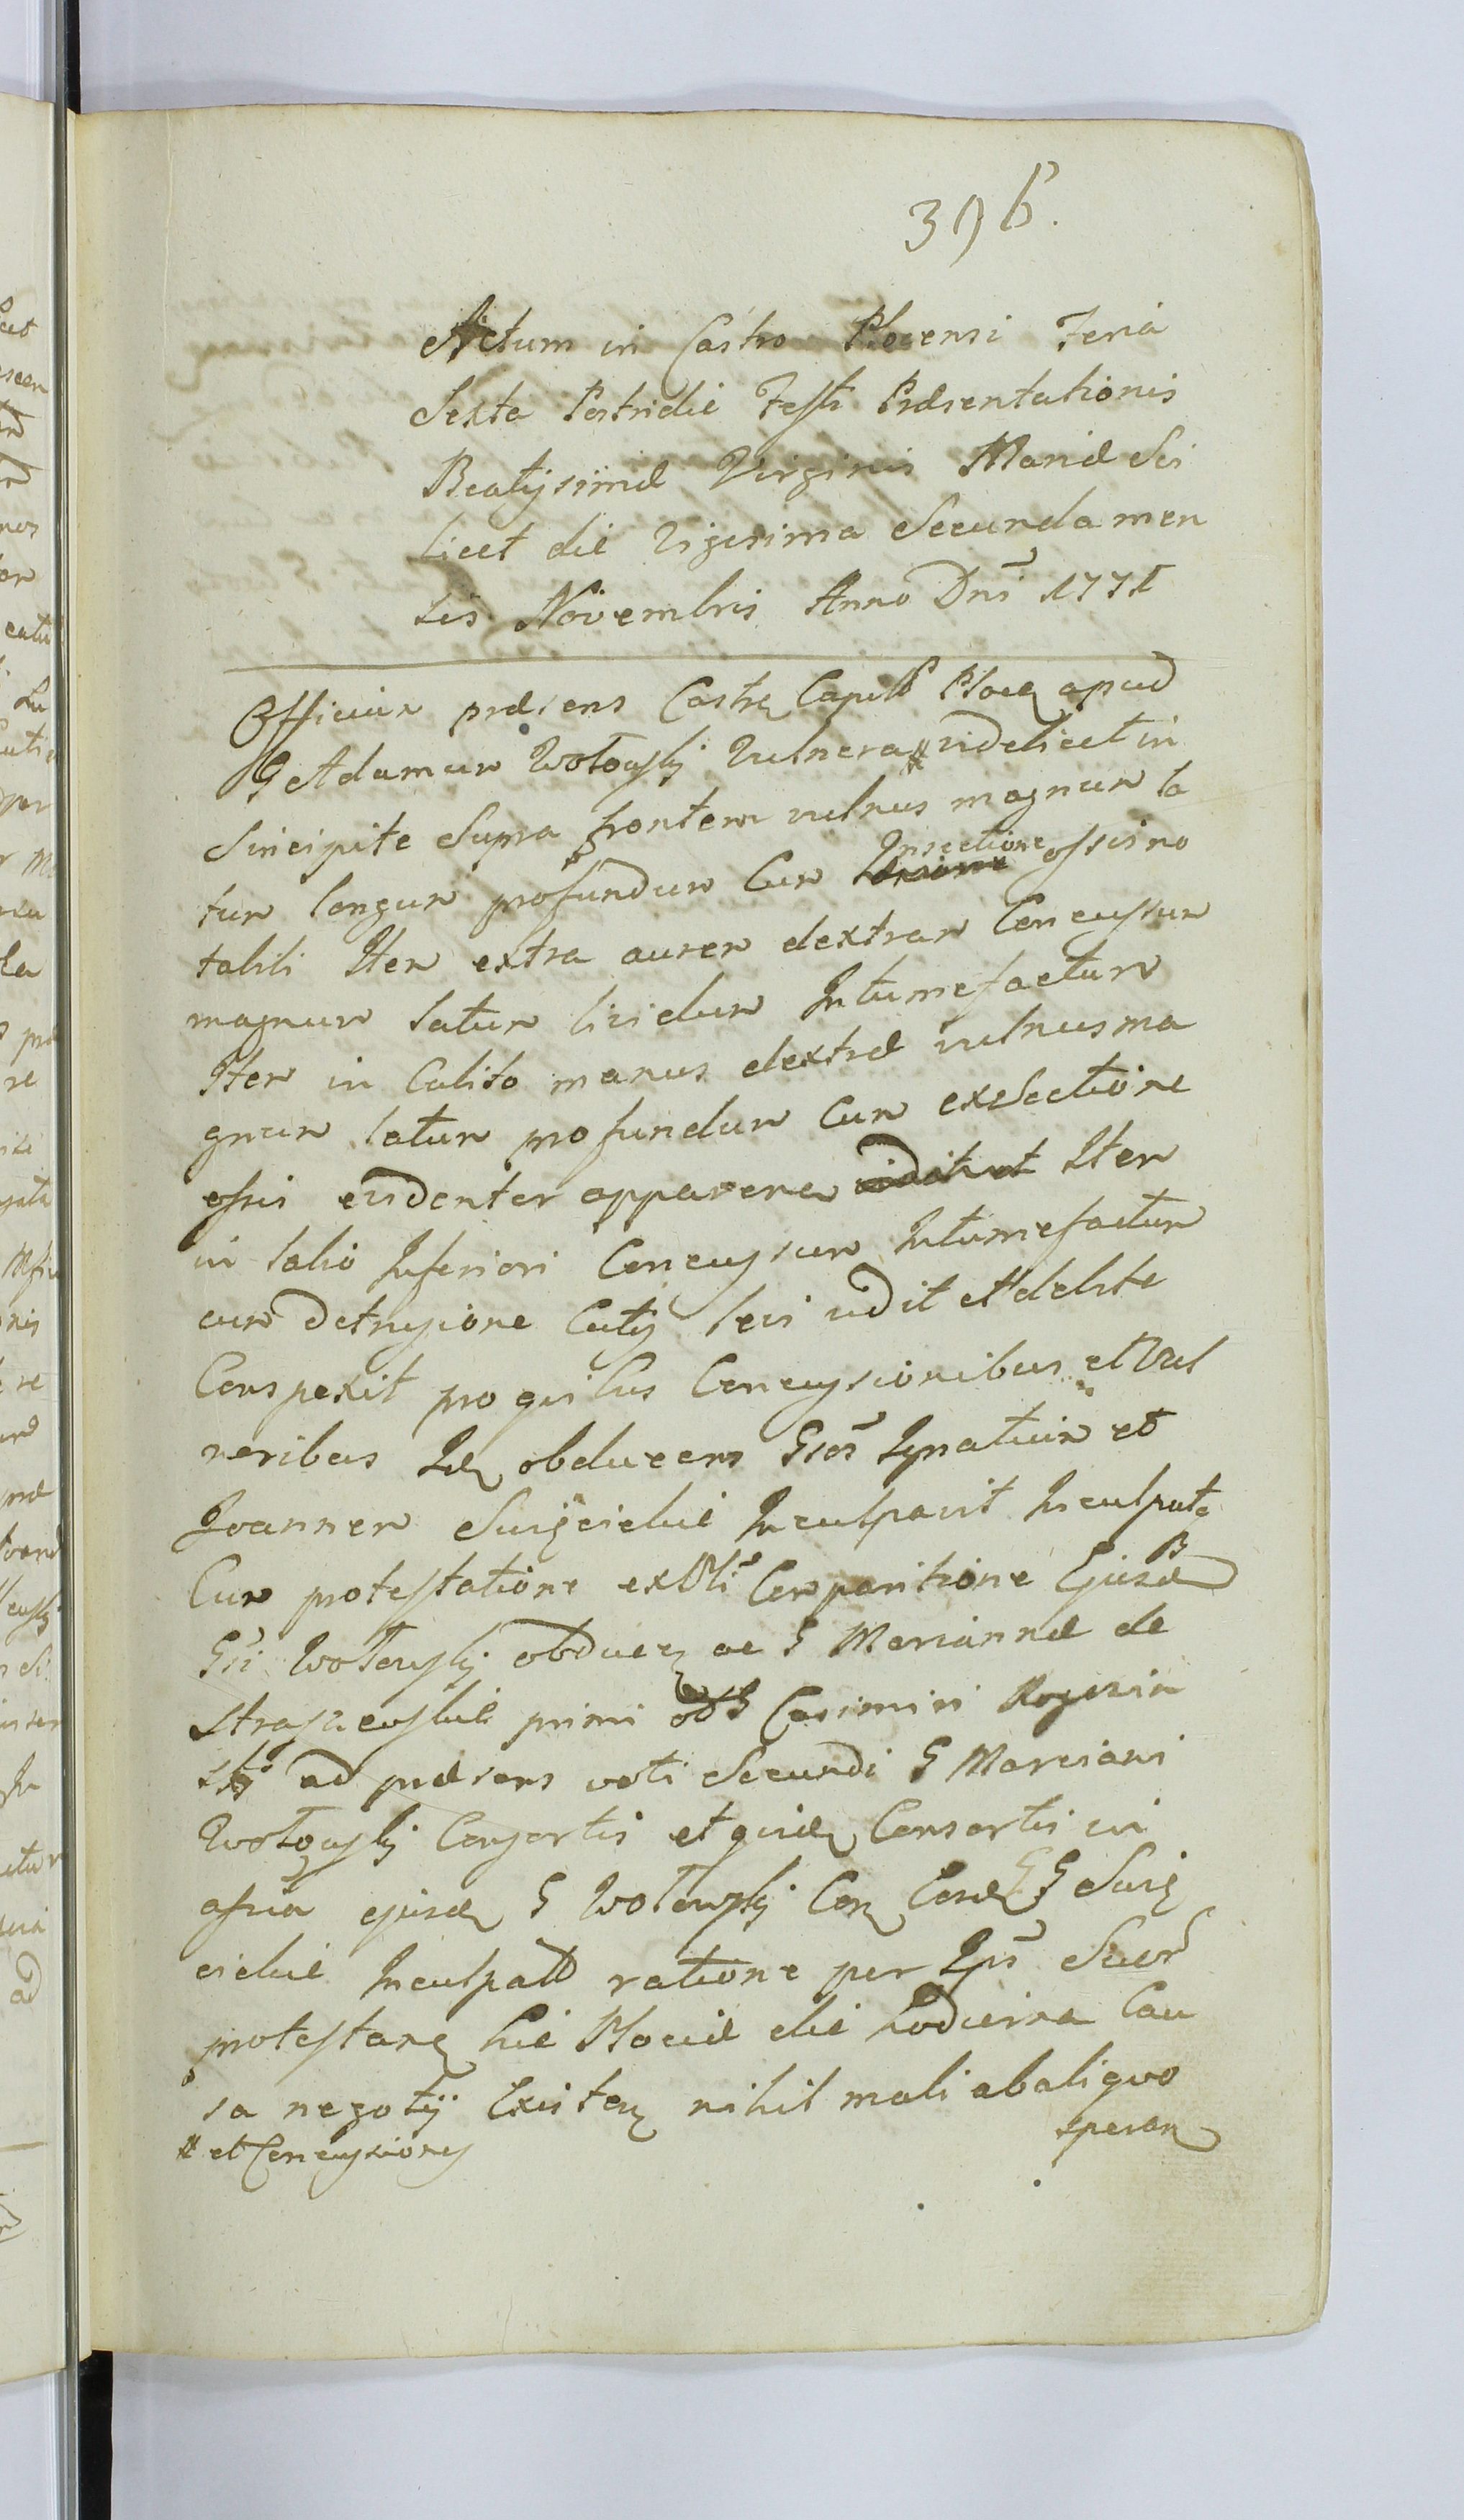 396.
Actum in Castro Plocensi Feria
Sexta Postridie Festi Præsentationis
Beatissimæ Virginis Mariæ Sci
licet die Vigesima Secunda men
sis Novembris Anno Dni 1771
Officium præsens Castr Capitl Ploc apud
G Adamum Wotowski Vulnera # videlicet in
Sincipite Supra frontem vulnus magnum la
tum longum profundum Cum Insectione ossis no
tabili Item extra aurem dextram Concussum
magnum latum lividum Intumefactum
Item in Cubito manus dextræ vulnus ma
gnum latum profundum Cum exsectione
ossis evidenter apparenem Item
in labio Inferiori Concussum Intumefactum
cum Detrusione Cutis levi vidit et debite
Conspexit pro quibus Concussionibus et Vul
neribus Id obducens Gsos Ignatium et
Joannem Suiscickie Inculpavit Inculpatq
Cum protestatione ex Obli Comparitione Ejusd
Gsi Wotowski obduc ac G Mariannæ de
Straszewskie primi G Casimiri Rogozin
ski ad præsens voti Secundi G Marciani
Wotowski Consortis et quid Consortis in
assia ejusd G Wotowski Con Cond GG Suis
cickie Inculpatt ratione per Ips Suor
protestan hic Plociæ die hodierna Cau
sa negotij Existen nihil mali ab aliquo
speran
# et Concussiones